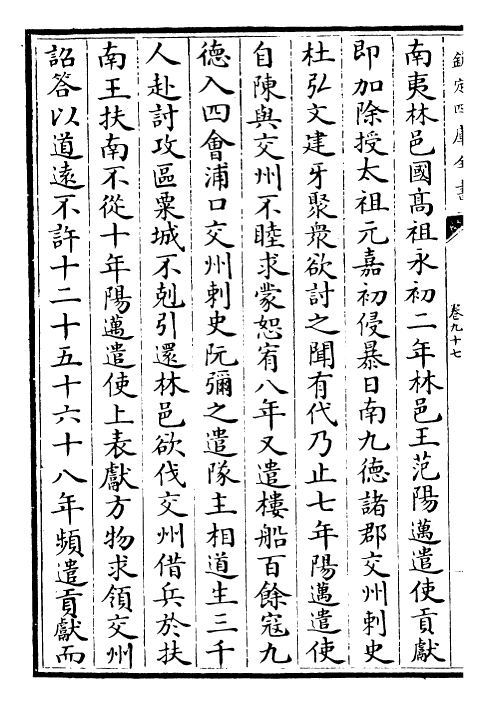 欽定四庫全書
卷九十七
南夷林邑國高祖永初二年林邑王范陽邁遣使貢獻
即加除授太祖元嘉初侵暴日南九德諸郡交州刺史
杜弘文建牙聚衆欲討之聞有代乃止七年陽邁遣使
自陳與交州不睦求蒙恕宥八年又遣樓船百餘寇九
德入四會浦口交州刺史阮彌之遣隊主相道生三千
人赴討攻區粟城不剋引還林邑欲伐交州借兵於扶
南王扶南不從十年陽邁遣使上表獻方物求領交州
詔答以道遠不許十二十五十六十八年頻遣貢獻而